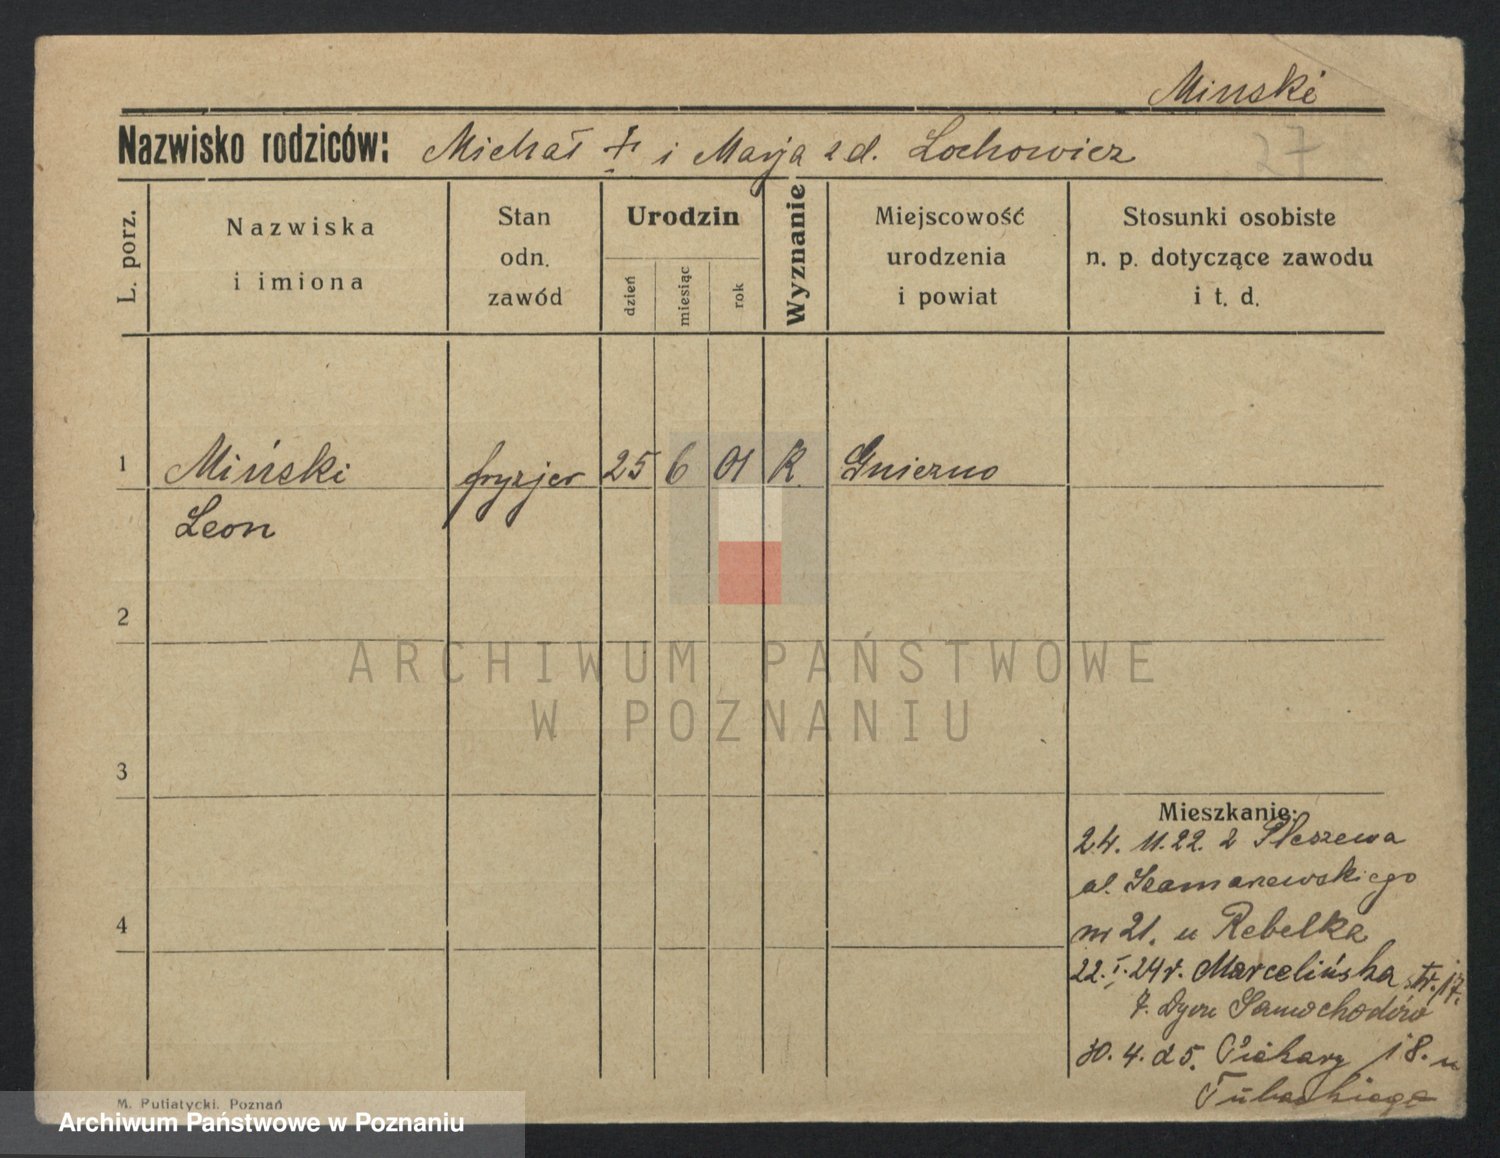 Minski
Nazwisko rodziców: Michał + i Marja zd. Lochowicz
27
L. porz.
Nazwiska
i imiona
Stan
odn.
zawód
Urodzin
dzień
miesiąc
rok
Wyznanie
Miejscowość
urodzenia
i powiat
Stosunki osobiste
n. p. dotyczące zawodu
i t. d.
1 Miński fryzjer 25 6 01 K. Gniezno
Leon
2
ARCHIWUM PAŃSTWOWE
W POZNANIU
3
Mieszkanie:
24. 11. 22. z Pleszewa
ul. Szamarzewskiego
nr 21. u Rebelka
22. I. 24 r. Marcelińska 17.
7. Dyon Samochodów
4
30. 4. 25. Piekary 18. u
M. Putiatycki. Poznań
Archiwum Państwowe w Poznaniu